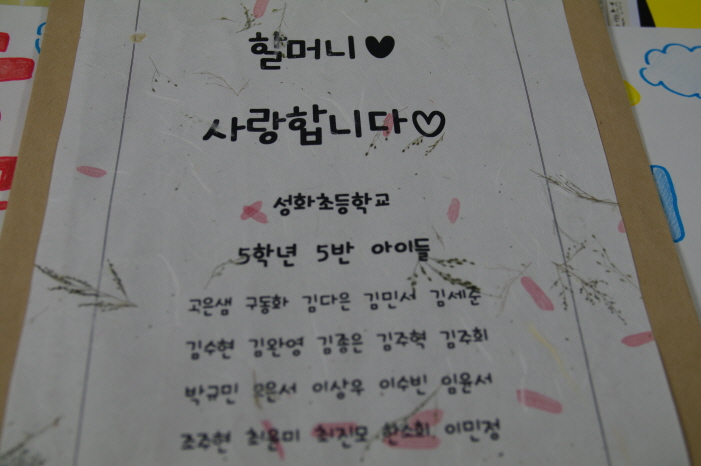 할머니♥
사랑합니다♡
성화초등학교
5학년 5반 아이들
고은샘 구동화 김다은 김민서 김세순
김수현 김완영 김종은 김주혁 김주희
박규민 이상우 이수빈 임윤서
조주현 최윤미 최진모 한소희 이민정